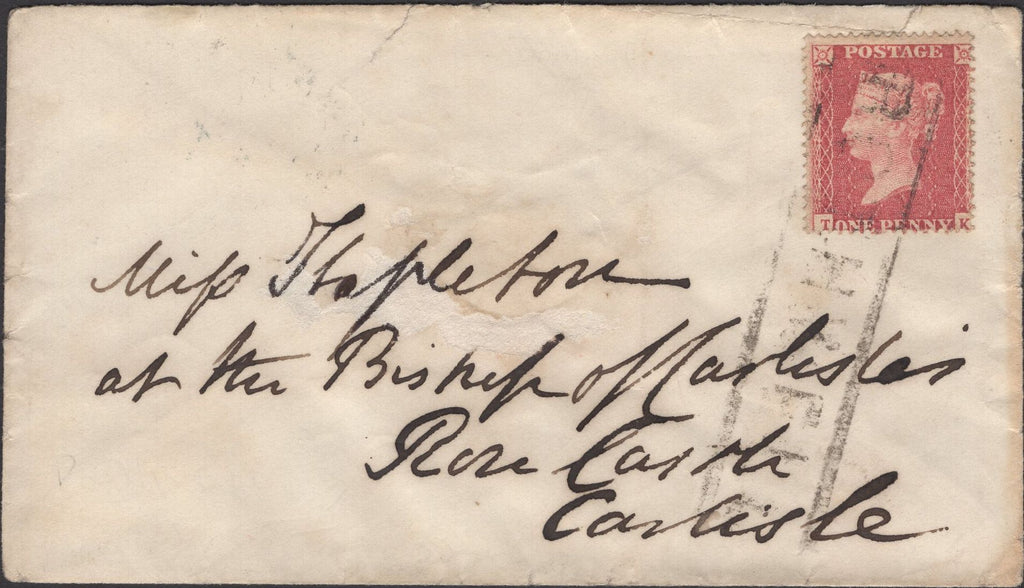 POSTAGE
T ONE PENNY K
Miss Stapleton
at the Bishop of Carlisle's
Rose Castle
Carlisle